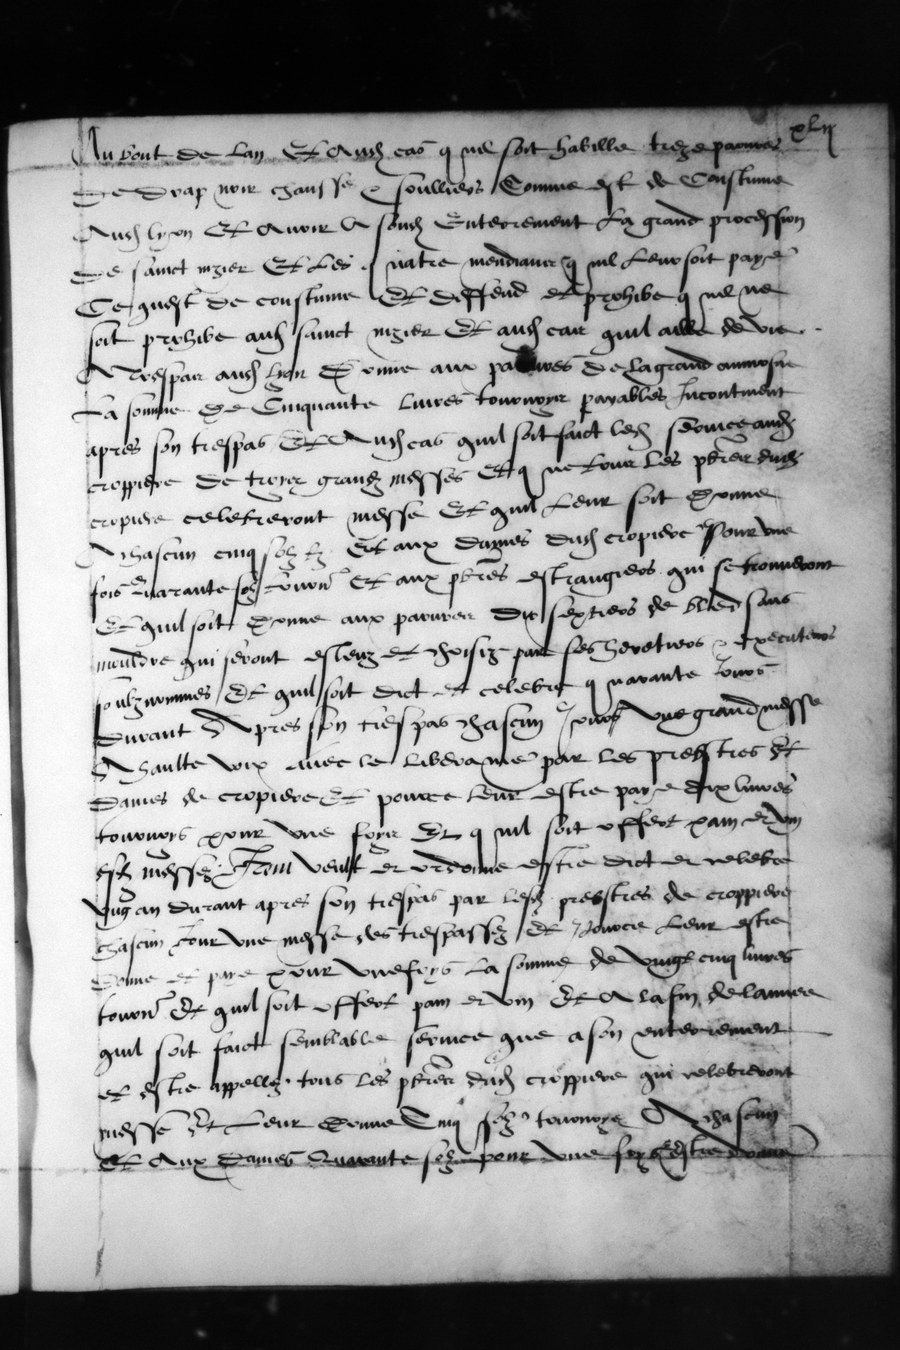 xlij
Au bout de lan Et Aud cas quil soit habille treze pauvres
De drap noir chausse & soulliers Comme est de Coustume
Aud lyon Et Avoir A sond Enterrement La grand procession
De sainct nizier Et Les quatre mendians quil Leur soit paye
Ce quest de coustume Et deffend et prohibe quil ne
soit prohibe aud sainct nizier Et aud cas quil aille de vie
A trespas aud lyon Donne aux pauvres De La grand aumosne
La somme De Cinquante livres tournoys payables Incontinent
apres son trespas Et Aud cas quil soit faict led service aud
croppiere De troys grand messes Et que tous Les pbres dud
cropiere celebreront messe Et quil Leur soit Donne
A chascun cinq solz tz Et aux dames dud cropiere Pour une
fois Quarante solz tourn Et aux pbres estrangiers qui se trouveront
Et quil soit Donne aux pauvres Dix sextiers de bled sans
mouldre qui seront esleuz et choisiz par ses heretiers & executeurs
soubznommes Et quil soit dict et celebre quarante Jours
Durant Apres son trespas chascun Jours Une grand messe
A haulte voix Avec le libera me par les prebstres Et
Dames de cropiere Et pource leur estre paye dix livres
tournoys pour une foys Et quil soit offert pain et vin
esd messes Item veult et ordonne estre dict et celebre
Ung an durant apres son trespas par lesd prebstres de croppiere
chascun Jour une messe des trespassez Et pource Leur estre
Donne et paye pour une foys La somme de vingt cinq livres
tourn Et quil soit offert pain et vin Et A la fin de lannee
quil soit faict semblable service que a son enterrement
et estre appellez tous Les pbres dud croppiere qui celebreront
messe Et Leur Donne Cinq solz tournoys A chascun
Et Aux Dames Quarante solz pour une foys Estre donne